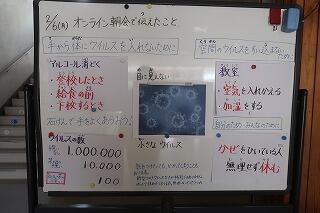 2/6(月) オンライン朝会で伝えたこと
手から体にウイルスを入れないために
空間のウイルスをすい込まないために
アルコール消どく
・登校したとき
・給食の前
・下校するとき
石けんで手をよくあらおう。
ウイルスの数
1,000,000
10,000
100
目に見えない
小さなウイルス
教室
・空気を入れかえる
・加湿をする
自分のため みんなのために
かぜをひいている人
無理せず休む